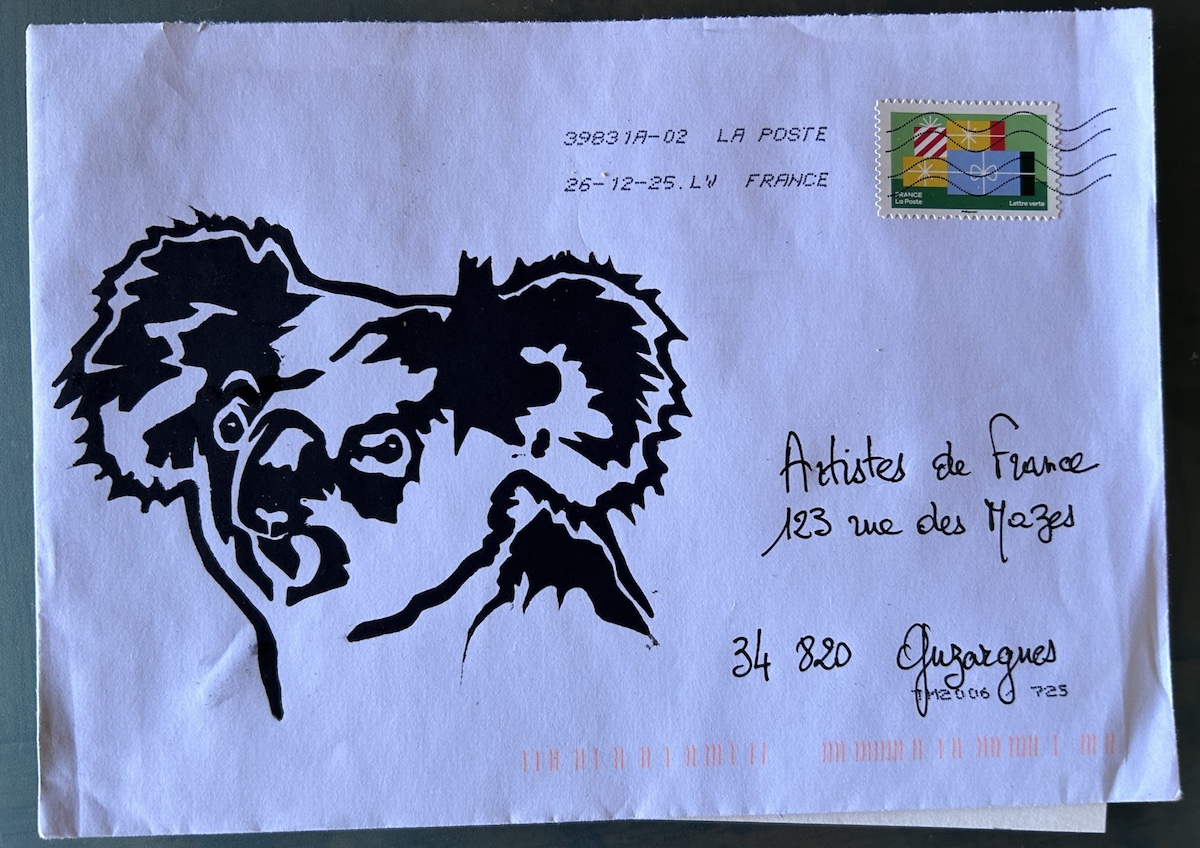 39831A-02 LA POSTE
26-12-25.LV FRANCE
FRANCE
La Poste
Lettre verte
Artistes de France
123 rue des Mazes
34 820 Guzargues
725